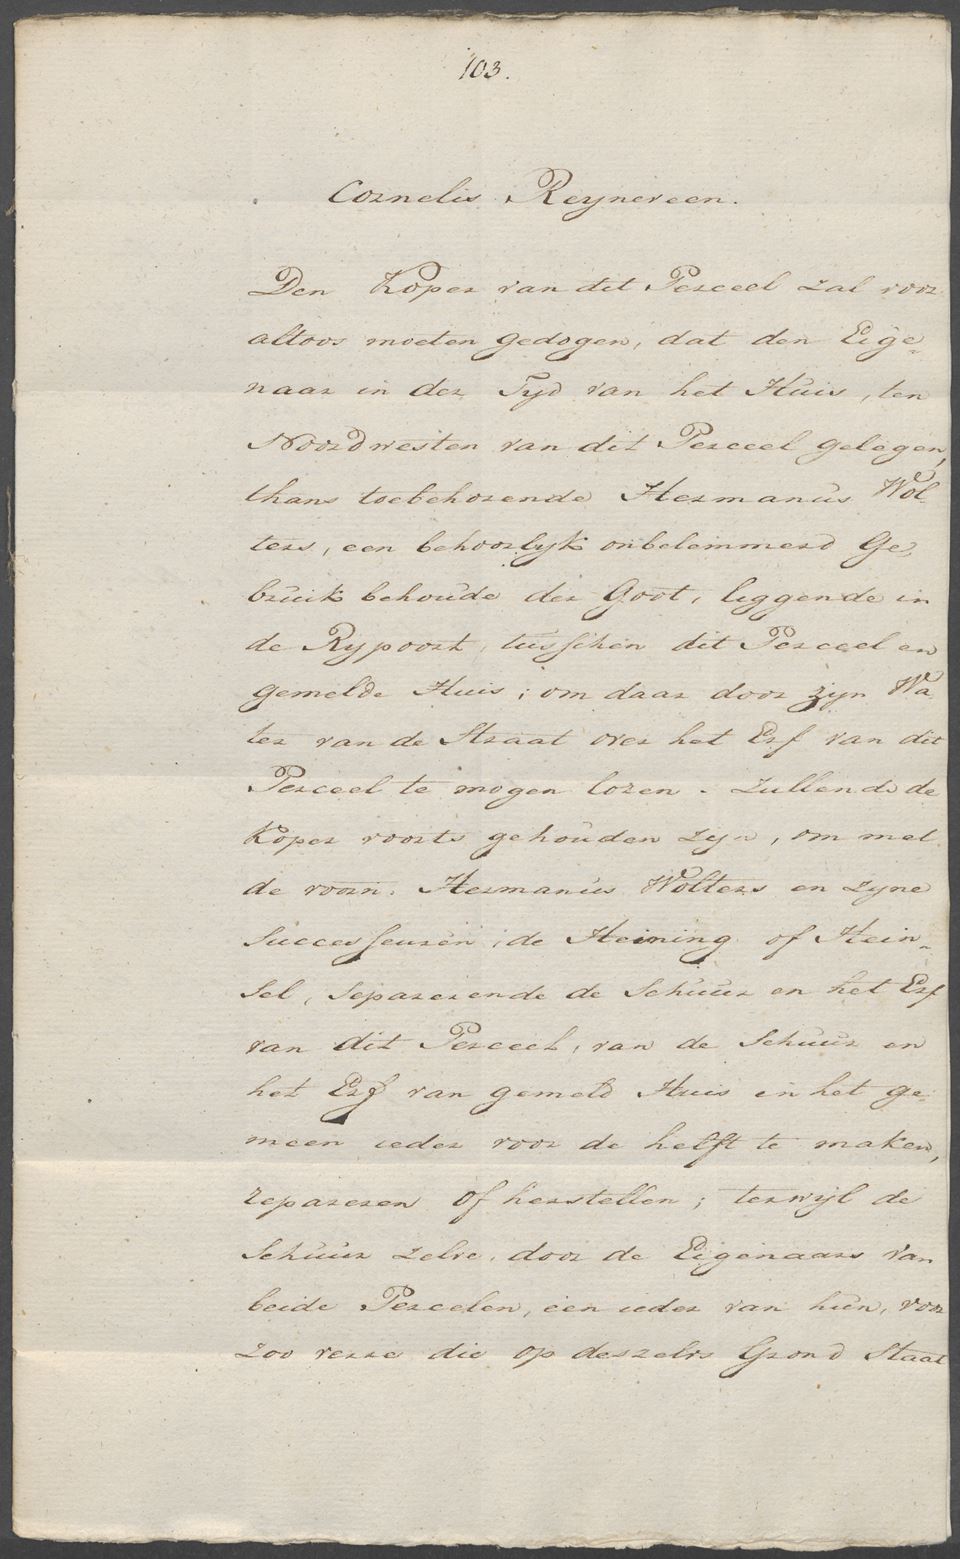 103.
Cornelis Reynereen.
Den Koper van dit Perceel zal voor
altoos moeten gedogen, dat den Eige-
naar in der Tyd van het Huis, ten
Noordwesten van dit Perceel gelegen,
thans toebehorende Hermanus Wol-
ters, een behoorlyk onbelemmerd Ge-
bruik behoude der Goot, liggende in
de Rypoort, tusschen dit Perceel en
gemelde Huis; om daar door zyn Wa-
ter van de Straat over het Erf van dit
Perceel te mogen lozen. Zullende de
Koper voorts gehouden zyn, om met
de voorn. Hermanus Wolters en zyne
Successeuren, de Heining of Hein-
sel, separerende de Schuur en het Erf
van dit Perceel, van de Schuur en
het Erf van gemeld Huis in het ge-
meen ieder voor de helft te maken,
repareren of herstellen; terwyl de
Schuur zelve, door de Eigenaars van
beide Percelen, een ieder van hun, voor
zoo verre die op deszelvs Grond Staat